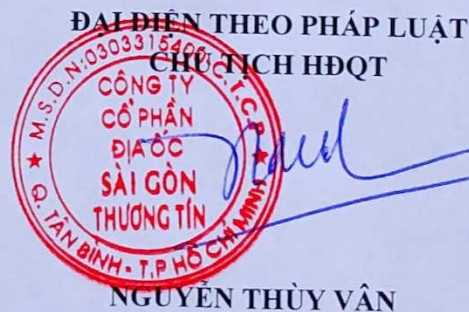 ĐẠI DIỆN THEO PHÁP LUẬT
CHỦ TỊCH HĐQT
M.S.D.N:0303315400-C.T.C.P
CÔNG TY
CỔ PHẦN
ĐỊA ỐC
SÀI GÒN
THƯƠNG TÍN
Q. TÂN BÌNH - T.P HỒ CHÍ MINH
NGUYỄN THÙY VÂN